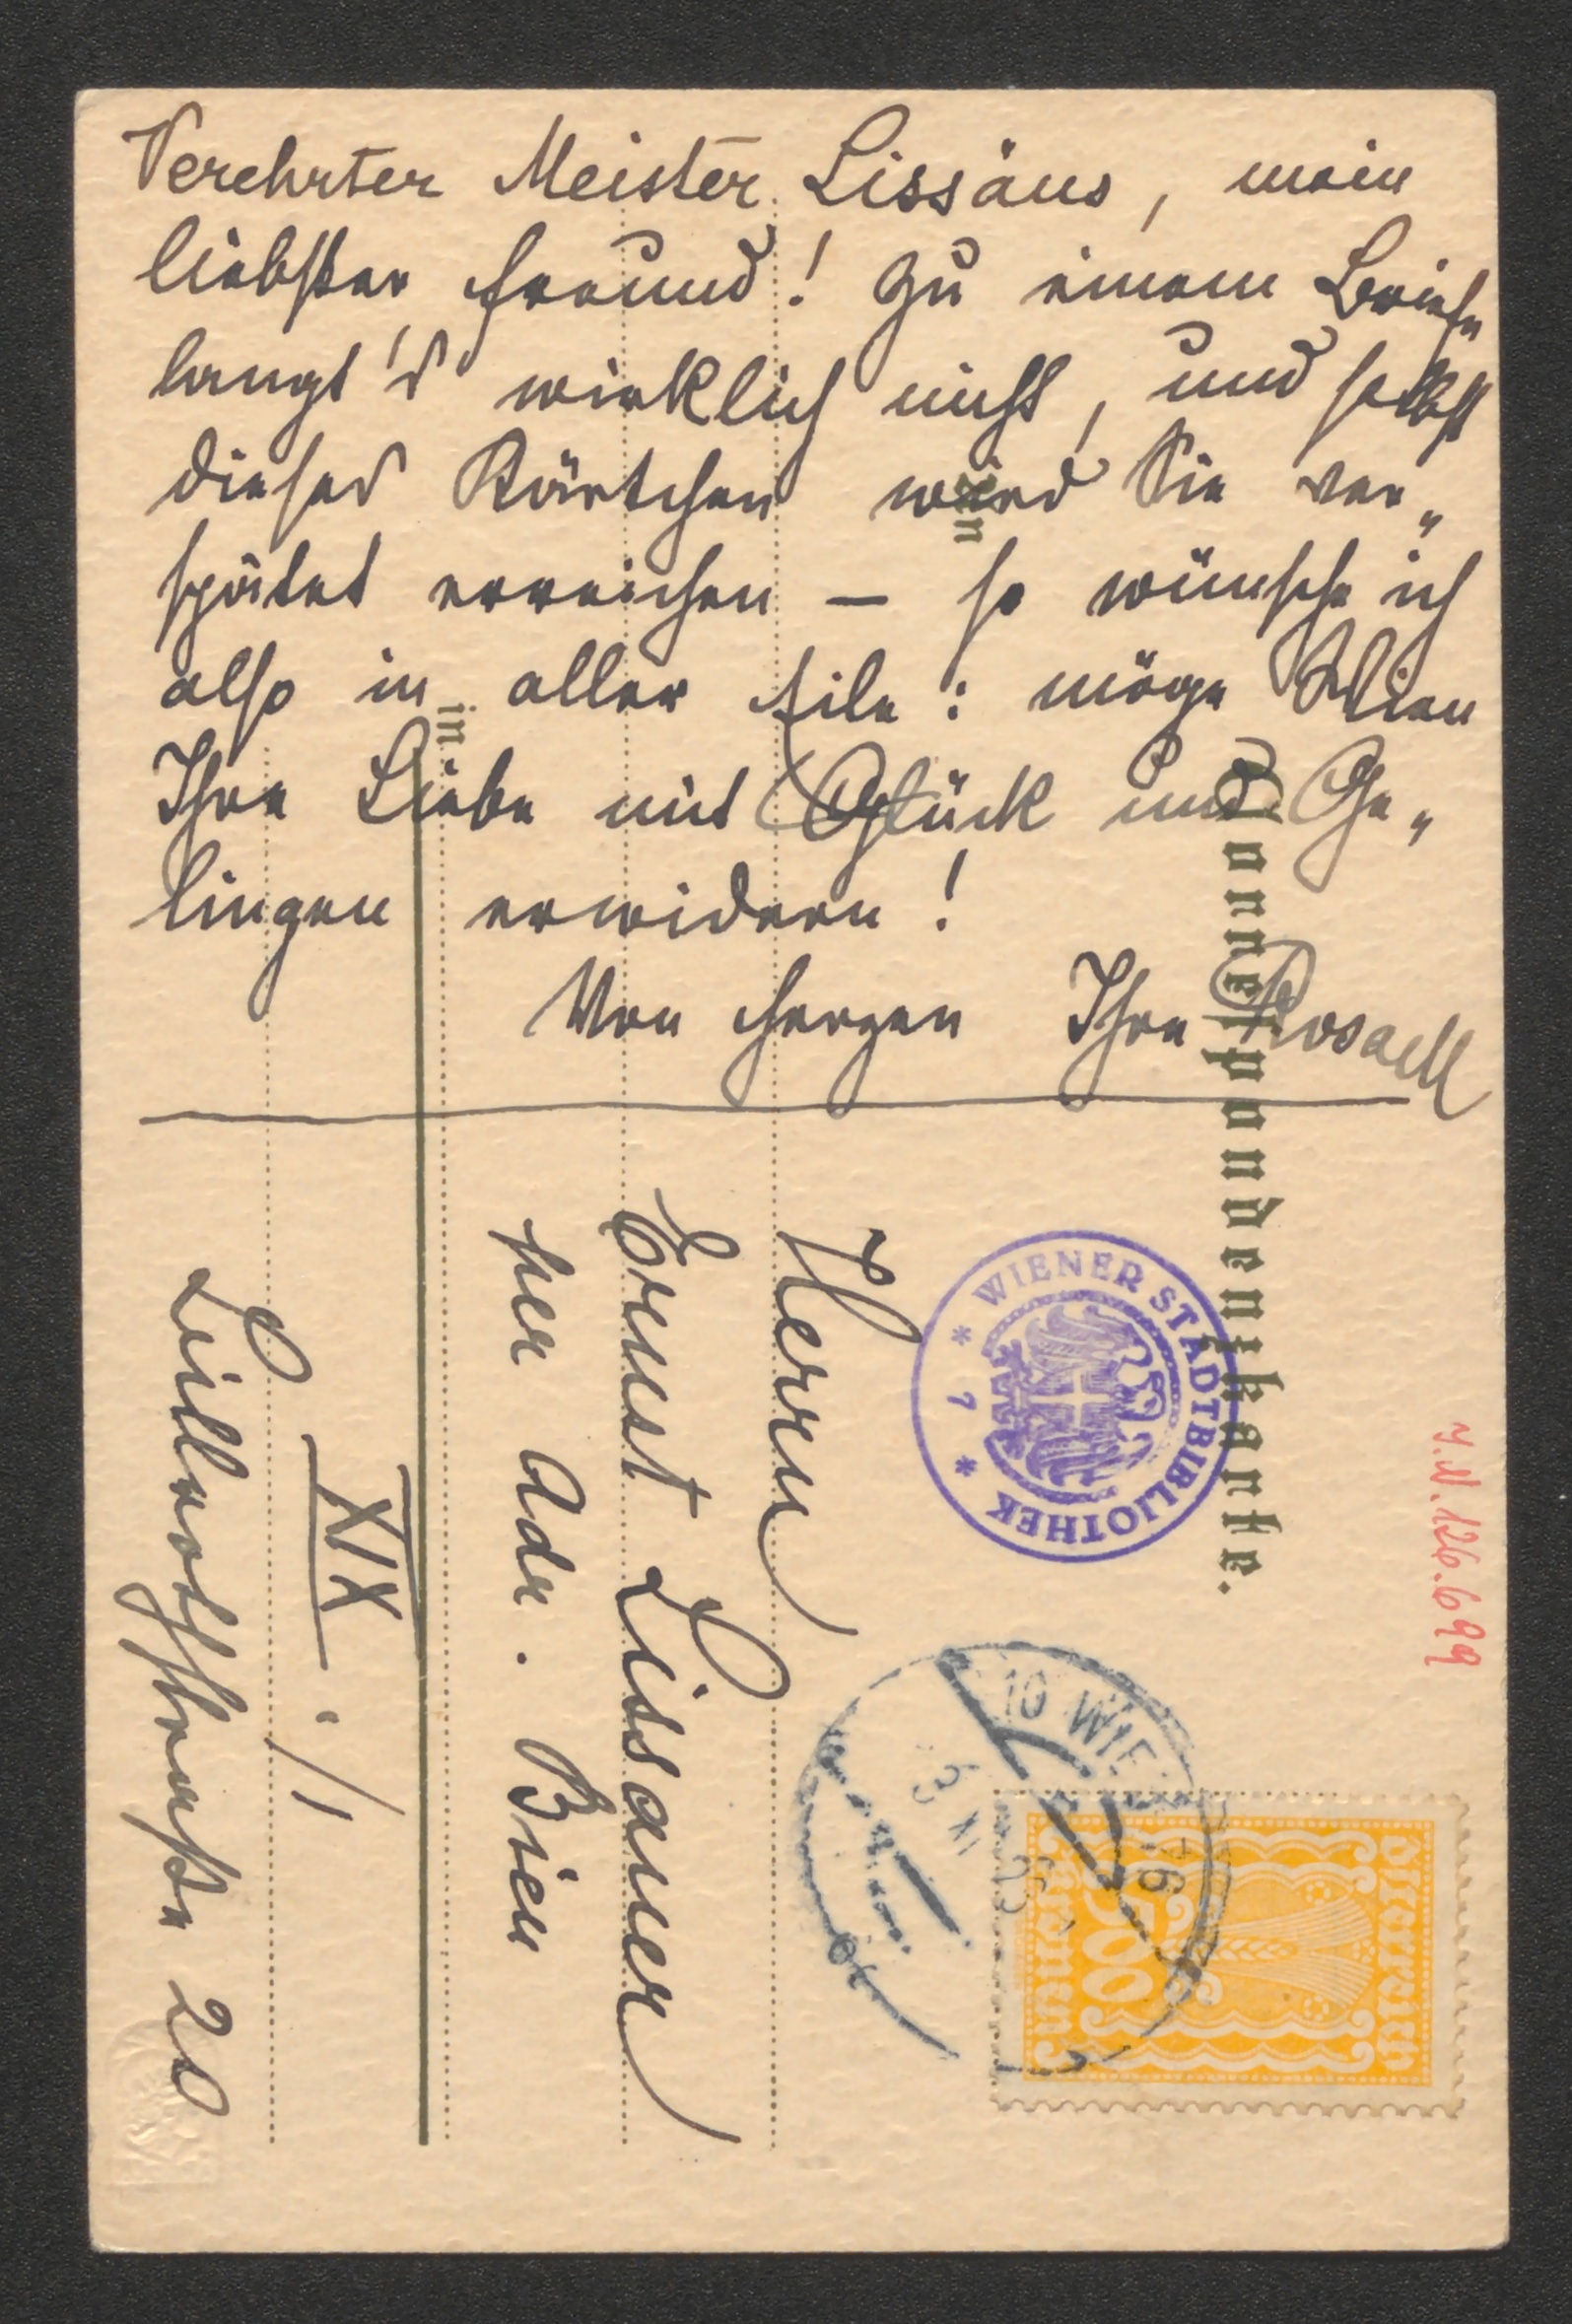 Verehrter Meister Lissäus, mein
liebster Freund! Zu einem Briefe
langt's wirklich nicht, und selbst
dieses Kärtchen wird Sie ver„
spätet erreichen – so wünsche ich
also in aller Eile: möge Wien
Ihre Liebe mit Glück und Ge„
lingen erwidern!
Von Herzen Ihre
Correspondenzkarte.
An
in
Herrn
Ernst Lissauer
per Adr. Bien
XIX. //
Billrothstraße 20
WIENER STADTBIBLIOTHEK
* 7 *
J.N. 126.699
19 WIEN 76
XI 23
Österreich
500
Kronen